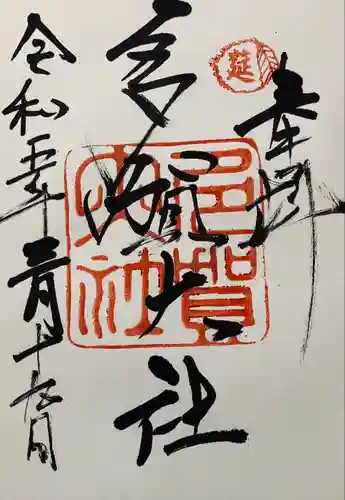 奉拝
莚
多賀大社
多賀大社
令和五年三月十九日